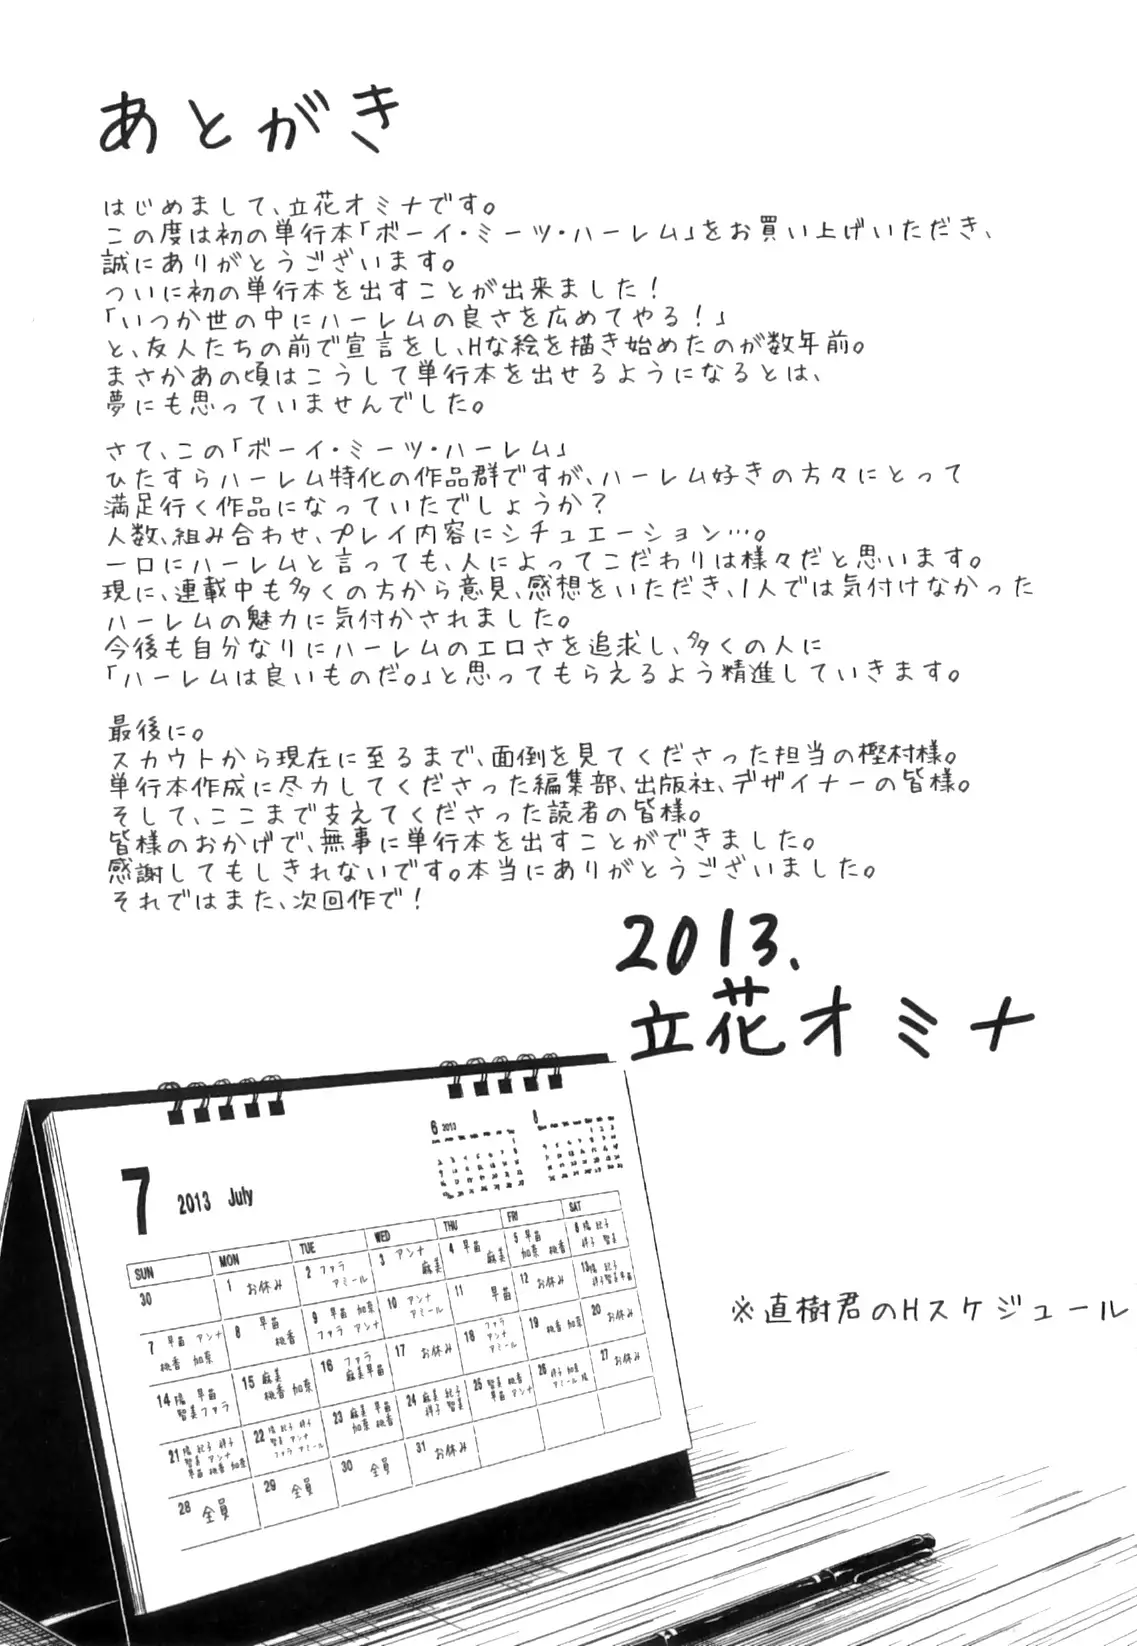 あとがき
はじめまして、立花オミナです。
この度は初の単行本「ボーイ・ミーツ・ハーレム」をお買い上げいただき、
誠にありがとうございます。
ついに初の単行本を出すことが出来ました！
「いつか世の中にハーレムの良さを広めてやる！」
と、友人たちの前で宣言をし、Hな絵を描き始めたのが数年前。
まさかあの頃はこうして単行本を出せるようになるとは、
夢にも思っていませんでした。
さて、この「ボーイ・ミーツ・ハーレム」
ひたすらハーレム特化の作品群ですが、ハーレム好きの方々にとって
満足行く作品になっていたでしょうか？
人数、組み合わせ、プレイ内容にシチュエーション…。
一口にハーレムと言っても、人によってこだわりは様々だと思います。
現に、連載中も多くの方から意見、感想をいただき、1人では気付けなかった
ハーレムの魅力に気付かされました。
今後も自分なりにハーレムのエロさを追求し、多くの人に
「ハーレムは良いものだ。」と思ってもらえるよう精進していきます。
最後に。
スカウトから現在に至るまで、面倒を見てくださった担当の樫村様。
単行本作成に尽力してくださった編集部、出版社、デザイナーの皆様。
そして、ここまで支えてくださった読者の皆様。
皆様のおかげで、無事に単行本を出すことができました。
感謝してもしきれないです。本当にありがとうございました。
それではまた、次回作で！
2013.
立花オミナ
6 2013
7 2013 July
SUN MON TUE WED THU FRI SAT
30 1 お休み 2 ファラ アミール 3 アンナ 麻美 4 早苗 麻美 5 早苗 加奈 桃香 6 陽 紀子 祥子 智美
7 早苗 アンナ 桃香 加奈 8 早苗 桃香 9 早苗 加奈 ファラ アンナ 10 アンナ アミール 11 早苗 12 お休み 13 陽 紀子 祥子 智美 早苗
14 陽 早苗 智美 ファラ 15 麻美 桃香 加奈 16 ファラ 麻美 早苗 17 お休み 18 ファラ アンナ アミール 19 桃香 加奈 20 お休み
21 陽 紀子 祥子 智美 アンナ 早苗 桃香 加奈 22 陽 紀子 祥子 智美 アンナ ファラ アミール 23 麻美 早苗 加奈 桃香 24 麻美 紀子 祥子 智美 25 智美 桃香 早苗 アンナ 26 祥子 加奈 アミール 陽 27 お休み
28 全員 29 全員 30 全員 31 お休み
※直樹君のHスケジュール